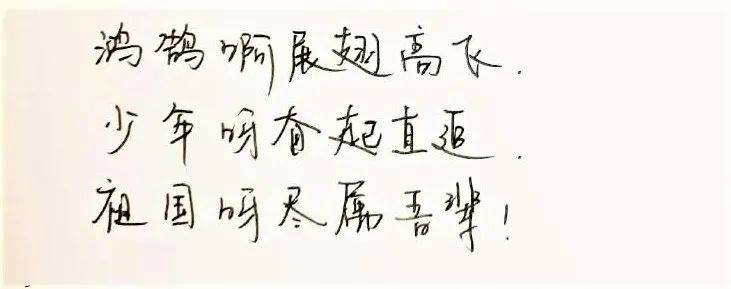 鸿鹄啊展翅高飞.
少年呀奋起直追.
祖国呀尽属吾辈!